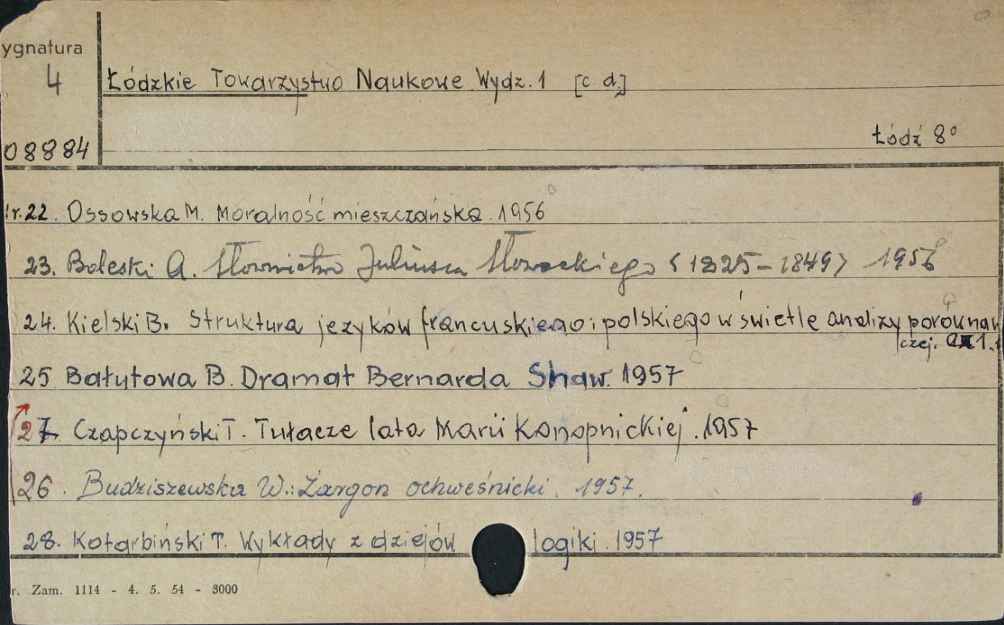 ygnatura
4
Łódzkie Towarzystwo Naukowe Wydz. 1 [c d.]
Łódź 8°
08884
r. 22. Ossowska M. Moralność mieszczańska. 1956
23. Boleski A. Słownictwo Juliusza Słowackiego <1825-1849> 1956
24. Kielski B. Struktura języków francuskiego i polskiego w świetle analizy porównaw
czej. 1.
25 Bałutowa B. Dramat Bernarda Shaw. 1957
27 Czapczyński T. Tułacze lata Marii Konopnickiej. 1957
26. Budziszewska W.: Żargon ochweśnicki. 1957.
28. Kotarbiński T. Wykłady z dziejów logiki. 1957
r. Zam. 1114 - 4. 5. 54 - 3000